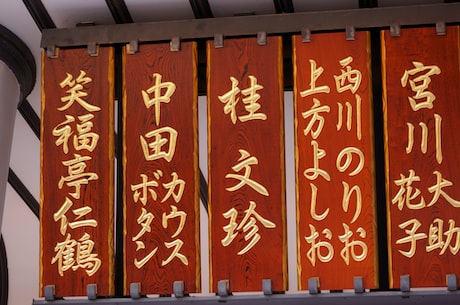 笑福亭仁鶴
中田 カウス
ボタン
桂 文珍
西川のりお
上方よしお
宮川 大助
花子